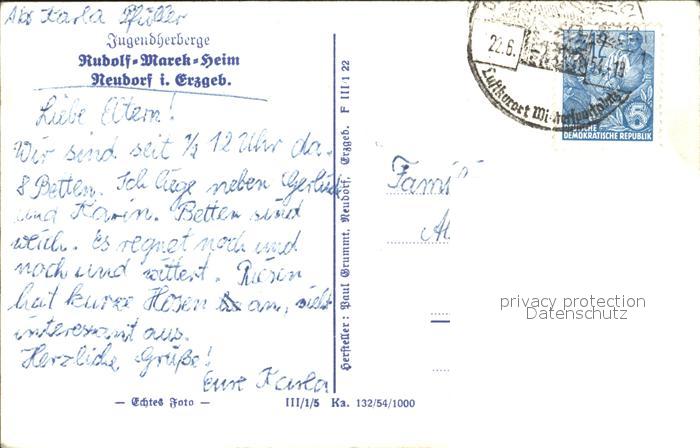 Abs Karla Pfüller
Jugendherberge
Rudolf-Marek-Heim
Neudorf i. Erzgeb.
Liebe Eltern!
Wir sind seit ½ 12 Uhr da.
8 Betten. Ich liege neben
und Karin. Betten sind
weich. Es regnet noch und
noch und
hat kurze Hosen an, sieht
interessant aus.
Herzliche Grüße!
Eure Karla
— Echtes Foto —
III/1/5 Ka. 132/54/1000
Hersteller: Paul Grummt, Neudorf, Erzgeb. F III 1 22
22.6.
Luftkurort
5
DEUTSCHE
DEMOKRATISCHE REPUBLIK
Fami
privacy protection
Datenschutz